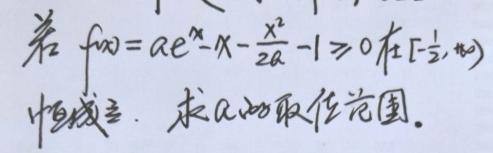 若 f(x)=ae^x-x-\frac{x^2}{2a}-1≥0在[-\frac{1}{2},+∞)
恒成立. 求a的取值范围.